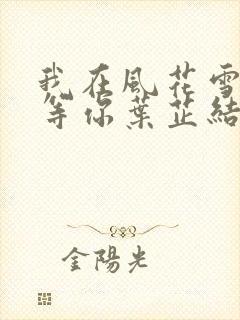 我在風花雪
等你葉芷結
金陽光